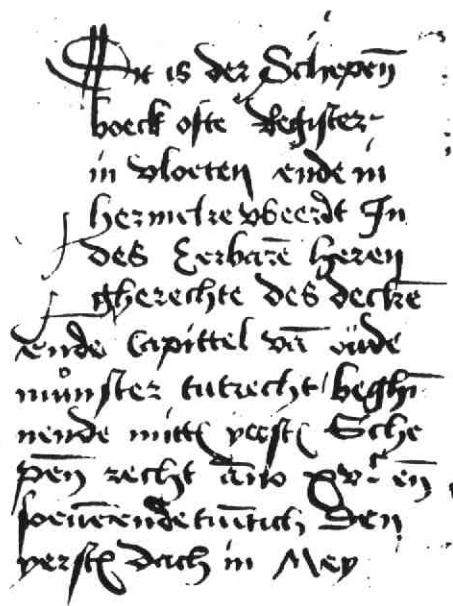 Dit is der Schepen̄
boeck ofte Register
in vloeten ende in
hermelrewbeerdt In
des Eerbarē heren
gherechte des deckē
ende Capittel vā oude
mu̇nster tutrecht beghī
nende mitt yerst Sche
pēn recht āno xvc eñ
soeuēendetwītich den
yerstē dach in Mey